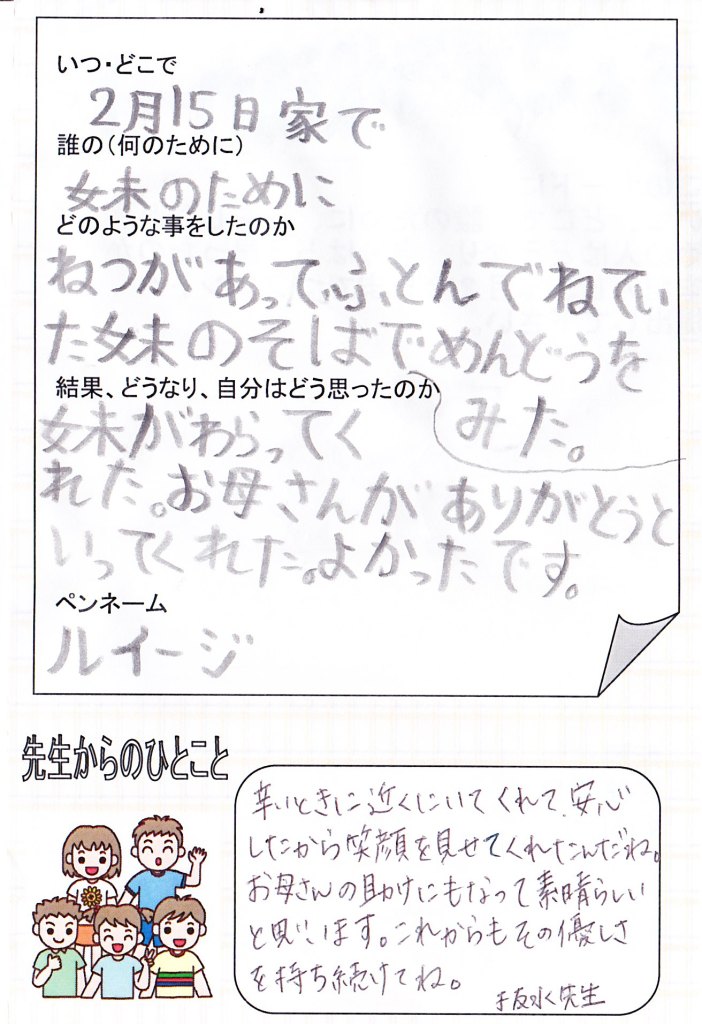 いつ・どこで
2月15日 家で
誰の(何のために)
妹のために
どのような事をしたのか
ねつがあってふとんでねてい
た妹のそばでめんどうを
みた。
結果、どうなり、自分はどう思ったのか
妹がわらってく
れた。お母さんがありがとうと
いってくれた。よかったです。
ペンネーム
ルイージ
先生からのひとこと
辛いときに近くにいてくれて、安心
したから笑顔を見せてくれたんだね。
お母さんの助けにもなって素晴らしい
と思います。これからもその優しさ
を持ち続けてね。
先生